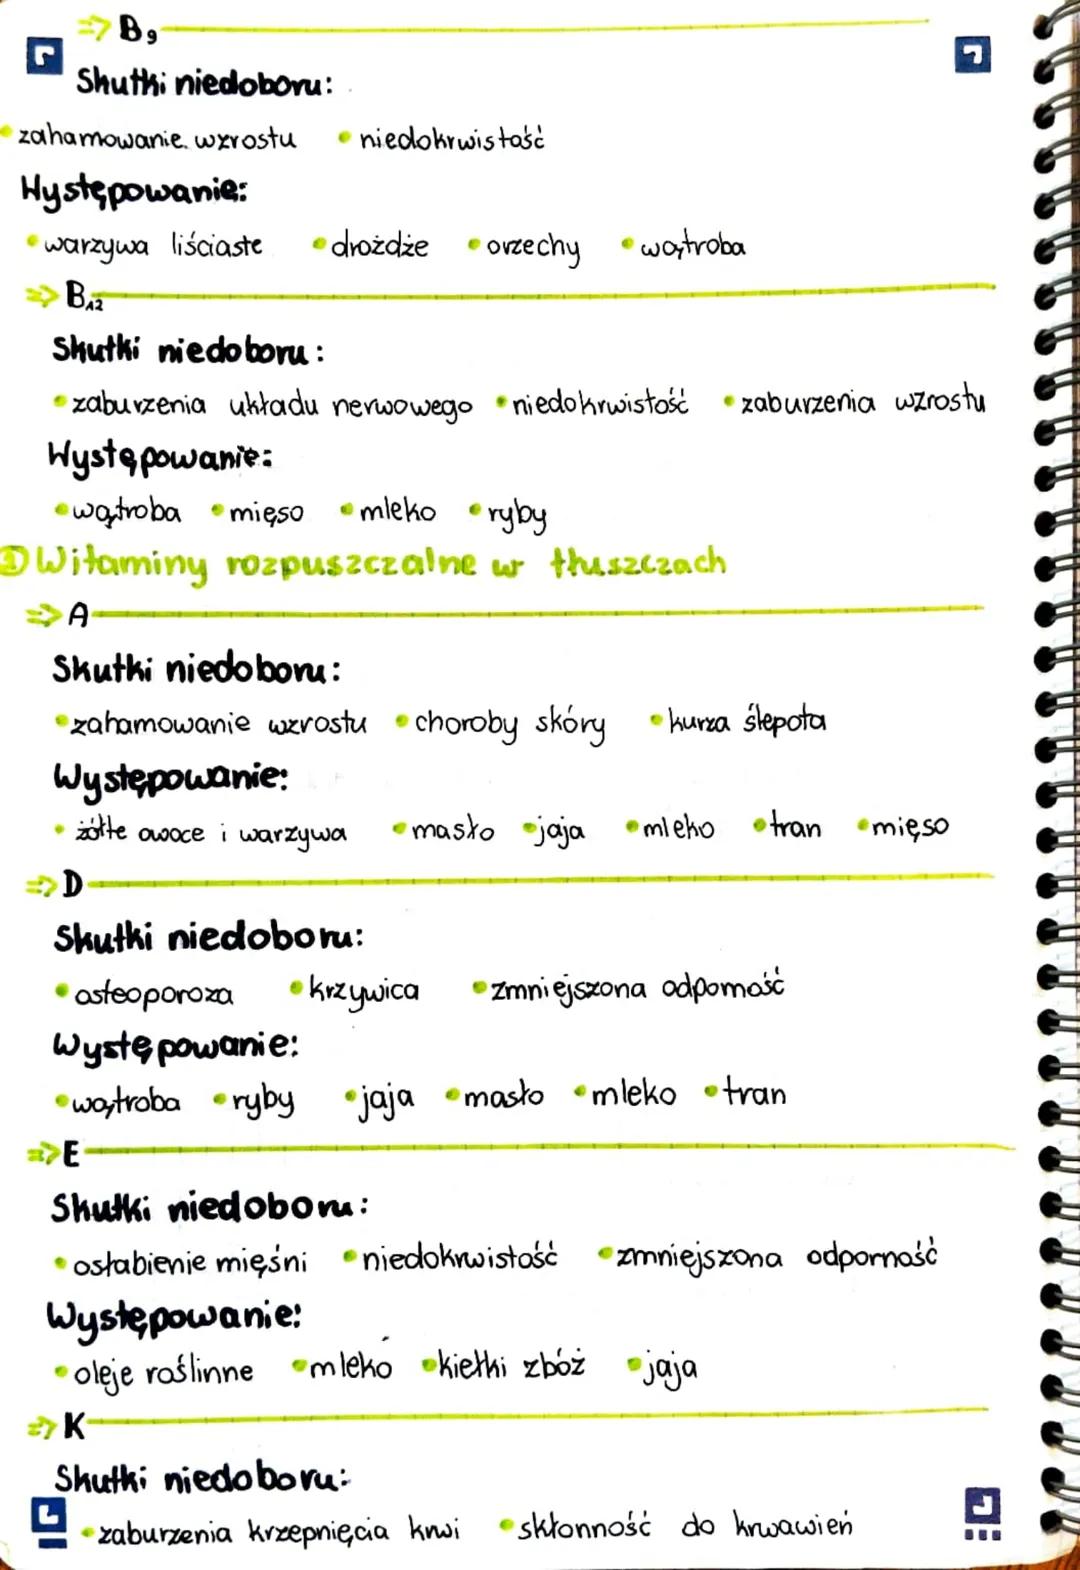 => B9
Skutki niedoboru:
• zahamowanie wzrostu • niedokrwistość
Występowanie:
• warzywa liściaste • drożdże • orzechy • wątroba
=> B12
Skutki niedoboru:
• zaburzenia układu nerwowego • niedokrwistość • zaburzenia wzrostu
Występowanie:
• wątroba • mięso • mleko • ryby
Witaminy rozpuszczalne w tłuszczach
=> A
Skutki niedoboru:
• zahamowanie wzrostu • choroby skóry • kurza ślepota
Występowanie:
• żółte owoce i warzywa • masło • jaja • mleko • tran • mięso
=> D
Skutki niedoboru:
• osteoporoza • krzywica • zmniejszona odporność
Występowanie:
• wątroba • ryby • jaja • masło • mleko • tran
=> E
Skutki niedoboru:
• osłabienie mięśni • niedokrwistość • zmniejszona odporność
Występowanie:
• oleje roślinne • mleko • kiełki zbóż • jaja
=> K
Skutki niedoboru:
• zaburzenia krzepnięcia krwi • skłonność do krwawień